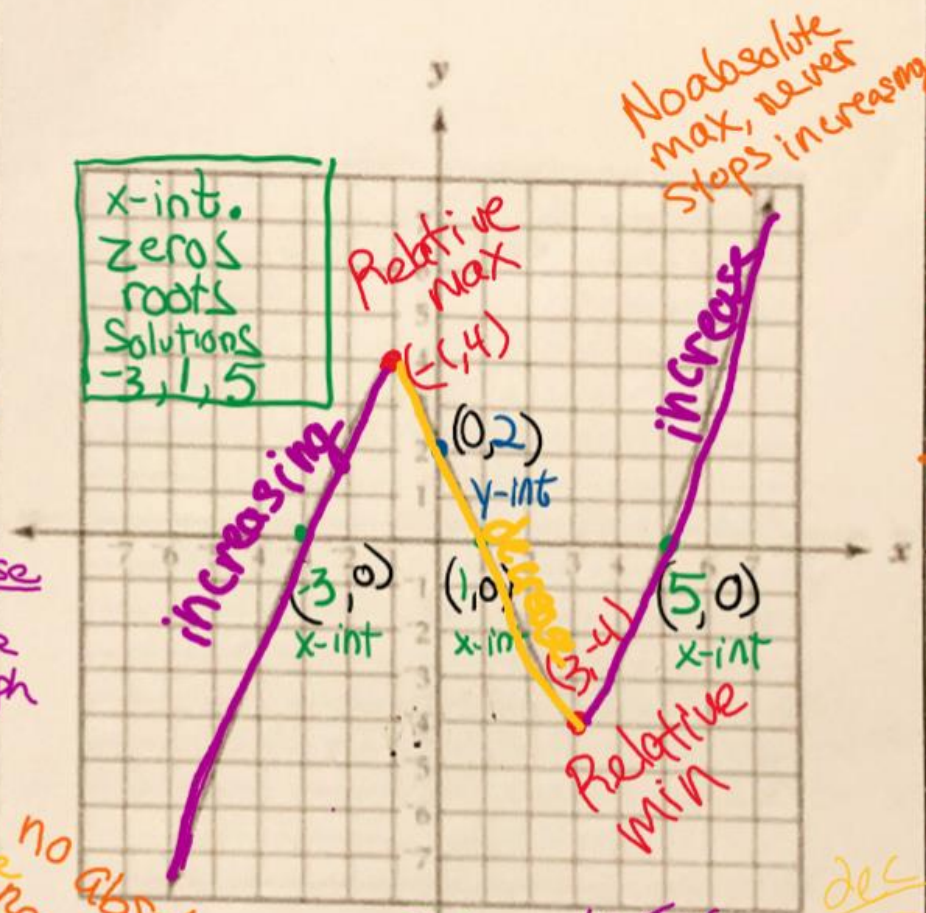 y
No absolute
max, never
stops increasing
x-int.
zeros
roots
Solutions
-3, 1, 5
Relative
max
(-1,4)
increase
(0,2)
y-int
increasing
decrease
x
(-3,0)
x-int
(1,0)
x-int
(5,0)
x-int
(3,-4)
Relative
min
no
abs
dec